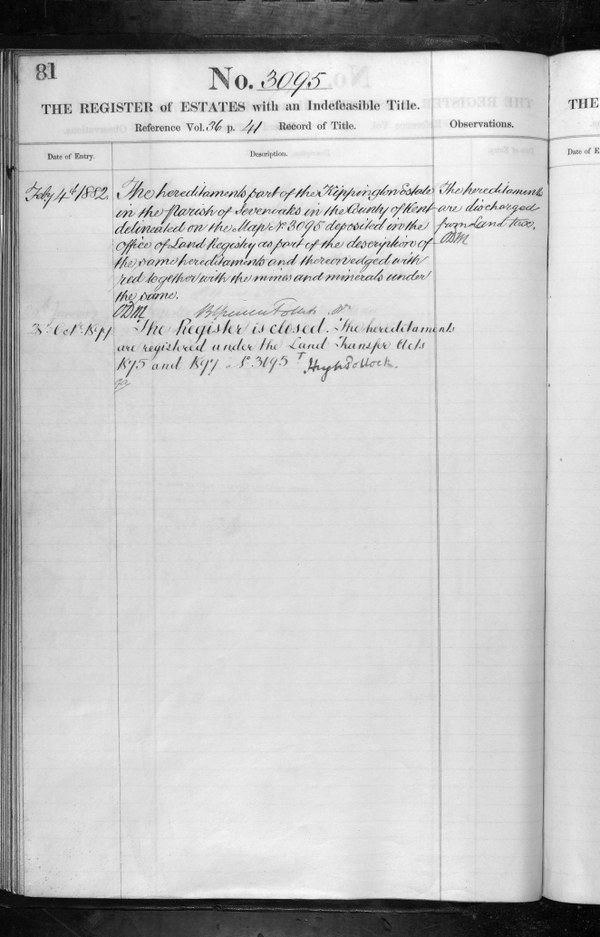 81
No. 3095
THE REGISTER of ESTATES with an Indefeasible Title.
THE
Reference Vol. 36 p. 41 Record of Title.
Observations.
Date of Entry.
Description.
Date of E
Feby 4th 1882
The hereditaments part of the Kippington Estate
in the Parish of Sevenoaks in the County of Kent
delineated on the Map No 3095 deposited in the
Office of Land Registry as part of the description of
the same hereditaments and thereon edged with
red together with the mines and minerals under
the same.
The hereditaments
are discharged
from Land tax.
The Register is closed. The hereditaments
are registered under the Land Transfer Acts
and No 3095
Hugh Pollock.